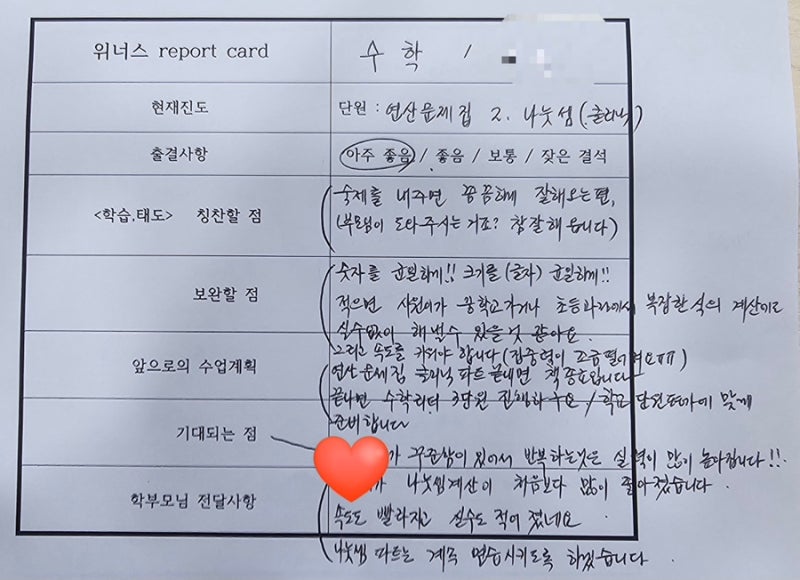 위너스 report card
수 학 /
현재진도
단원 : 연산문제집 2. 나눗셈 (클리닉)
출결사항
아주 좋음 / 좋음 / 보통 / 잦은 결석
<학습,태도> 칭찬할 점
숙제를 내주면 꼼꼼하게 잘해오는편,
(부모님이 도와주시는 거죠? 참 잘해 옵니다)
보완할 점
숫자를 균일하게!! 크기를 (글자) 균일하게!!
적으면 중학교가거나 초등고학년에서 복잡한 식의 계산이로
실수없이 해낼수 있을것 같아요.
그리고 속도를 키워야 합니다 (집중력이 조금 떨어져요ㅠㅠ)
앞으로의 수업계획
연산문제집 클리닉 파트 끝내면 책 종료입니다
끝내면 수학리더 3단원 진행하구요 / 학교 단원평가에 맞게
준비합니다
기대되는 점
가 꾸준함이 있어서 반복하는것은 실력이 많이 높아집니다!!
학부모님 전달사항
가 나눗셈계산이 처음보다 많이 좋아졌습니다.
속도도 빨라지고 실수도 적어 졌네요
나눗셈 파트는 계속 연습시키도록 하겠습니다.